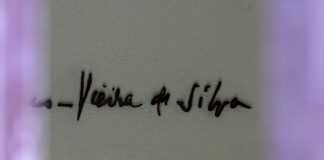 Vieira da Silva